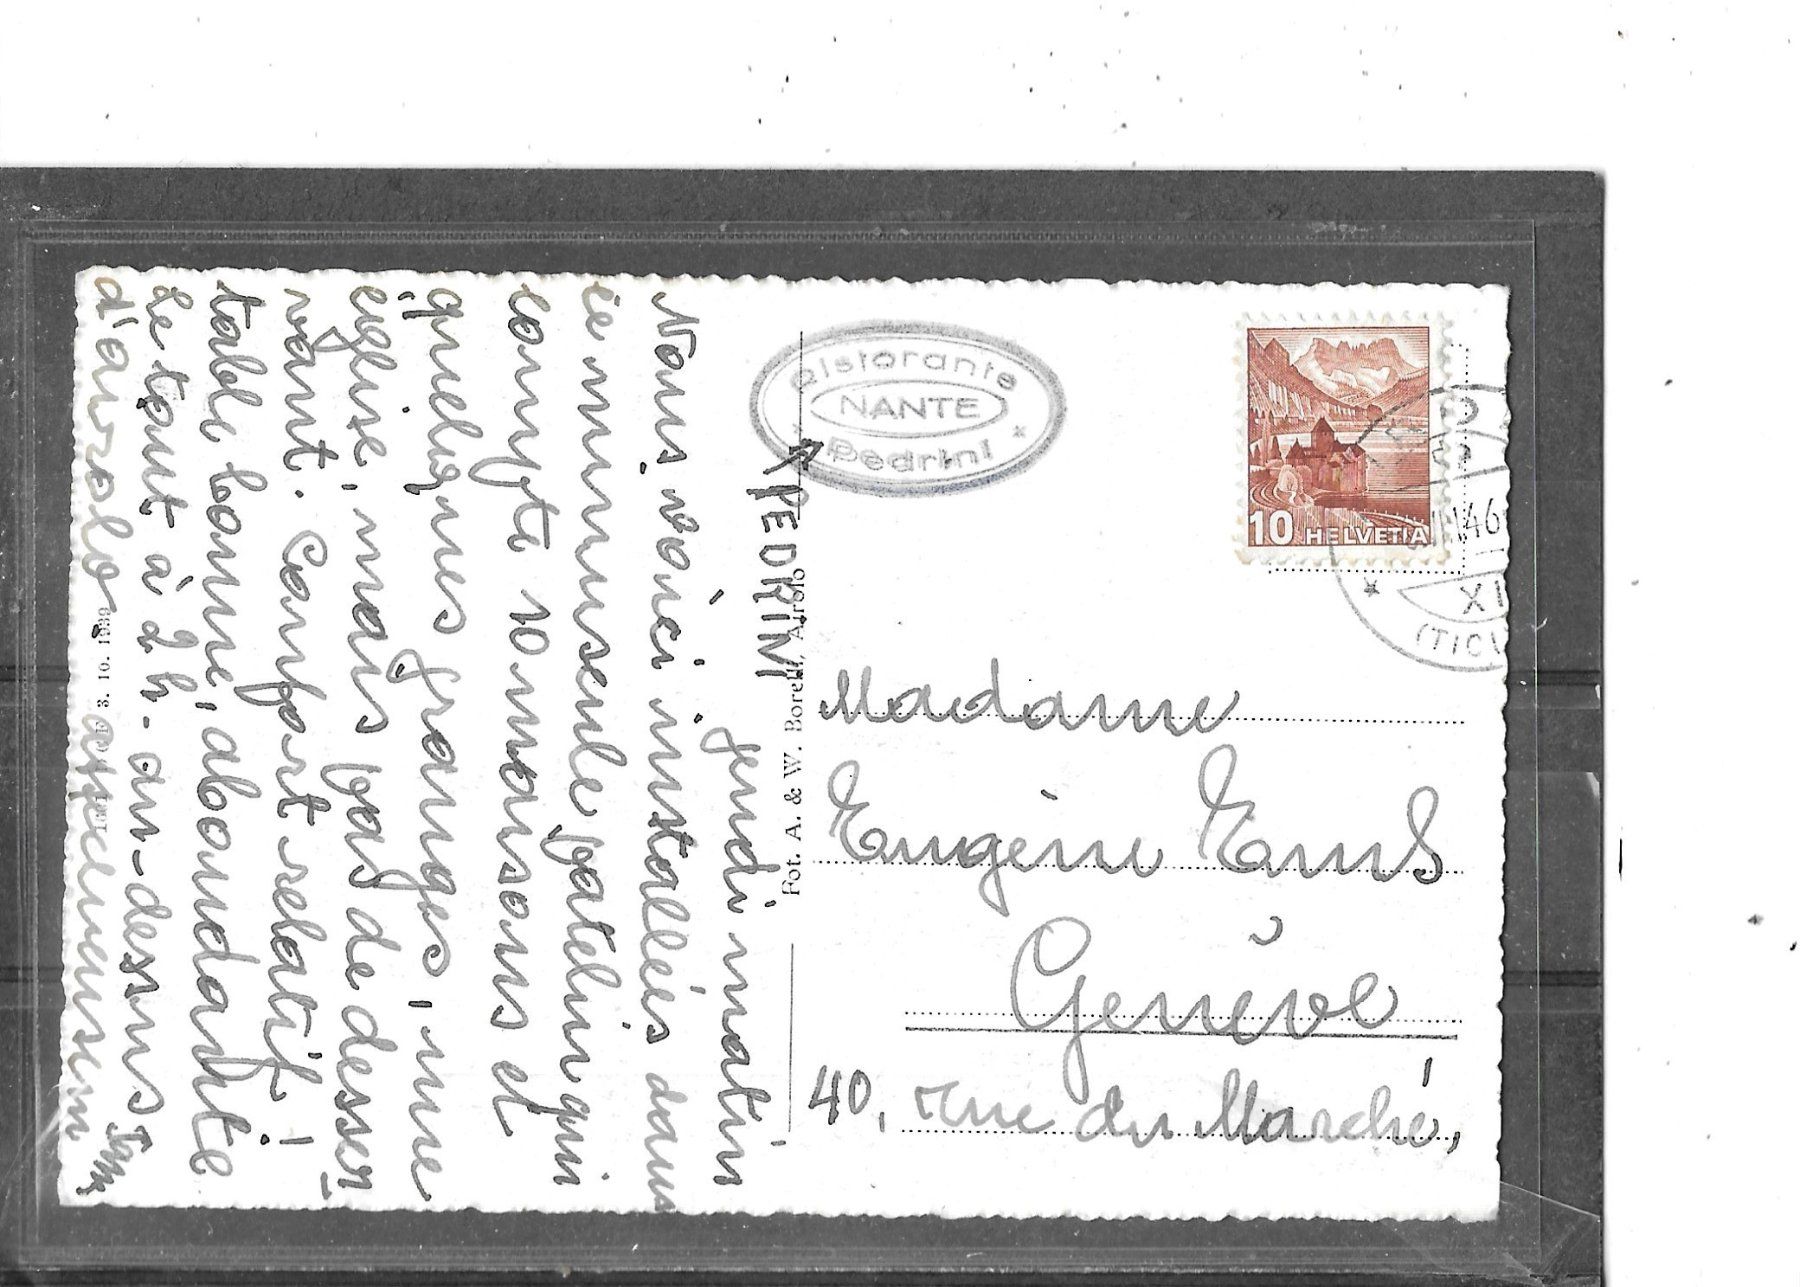 jeudi matin
Nous voici installées dans
ce minuscule patelin qui
compte 10 maisons et
quelques granges, une
église, mais pas de desser-
vant. Confort relatif!
table bonne, abondante
Le tout à 2 h. au-dessus
d'Airolo
PEDRINI
Ristorante
NANTE
Pedrini
10 HELVETIA
46
XI
(TICI
Fot. A. & W. Borelli, Airolo
3. 10. 1938
Madame
Eugénie Enns
Genève
40, rue du Marché,